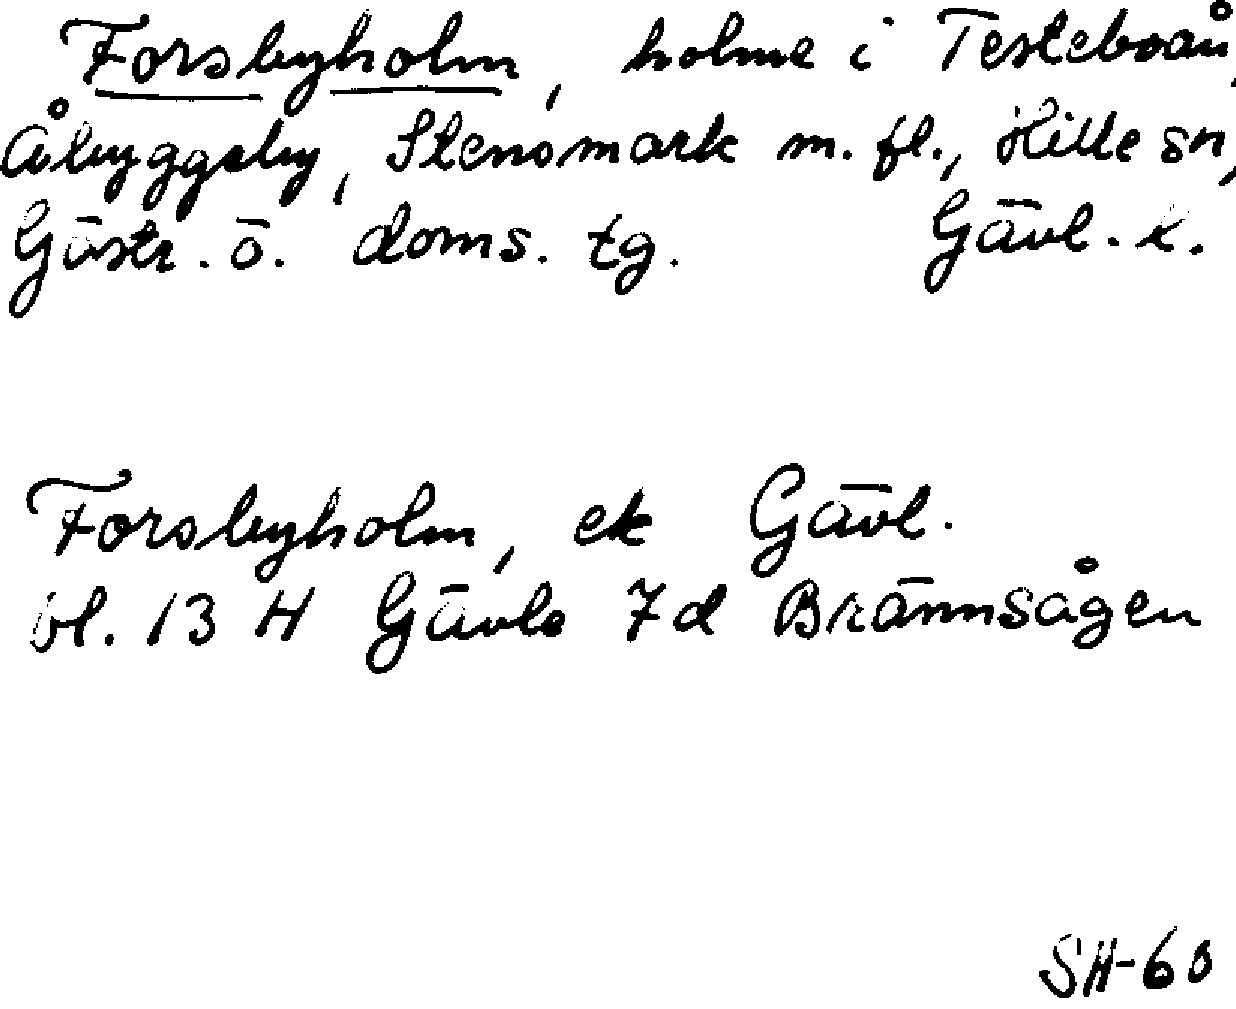 Forsbyholm, holme i Testeboån,
Åbyggeby, Stensmark m. fl., Hille sn,
Gästr. ö. doms. tg. Gävl. l.
Forsbyholm, ek Gävl.
bl. 13 H Gävle 7d Brännsågen
SH-60